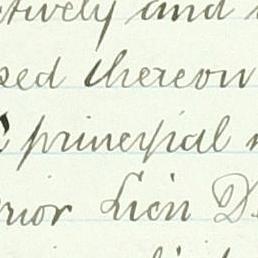 ctively and
sed thereon
principal
rior Lien D